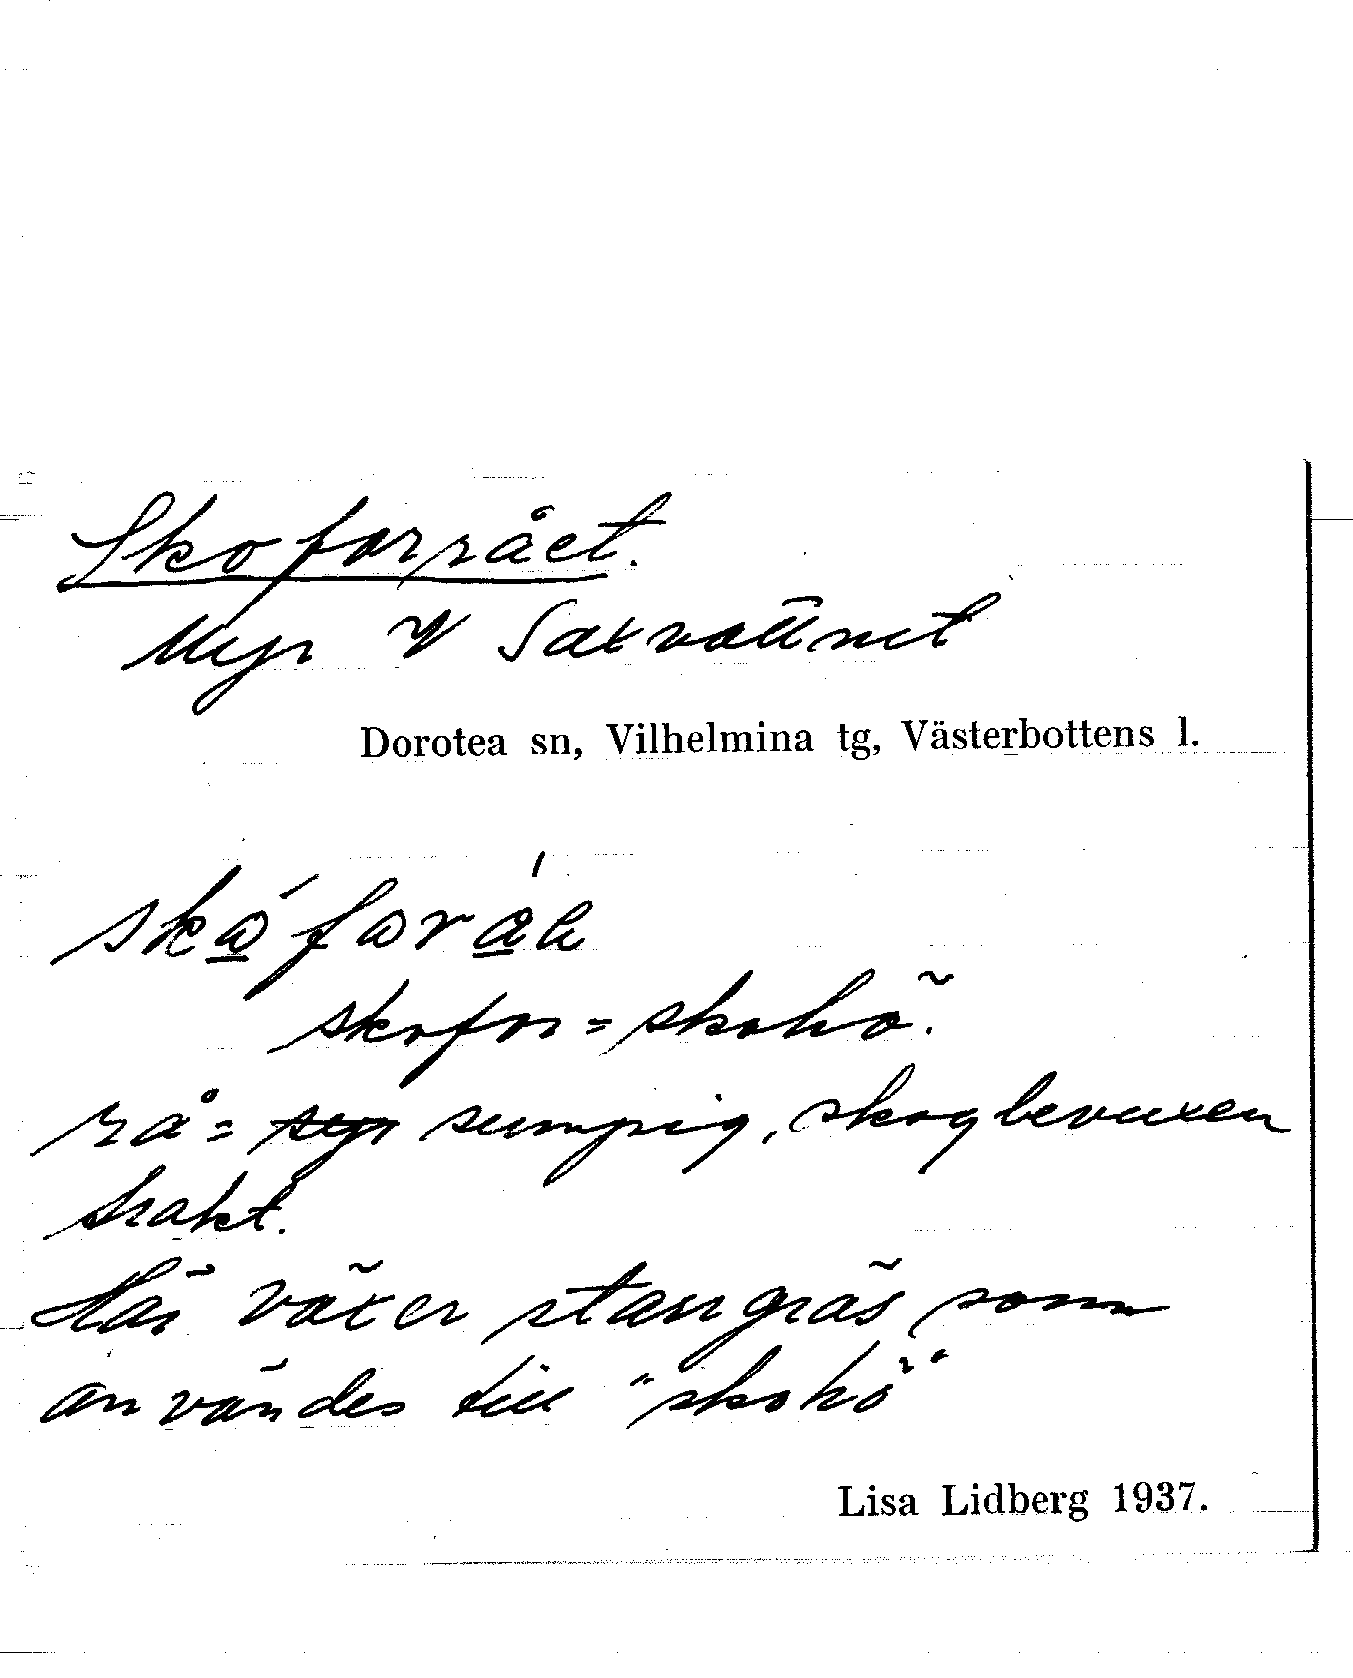 Skoforrået.
Myr V Saxvattnet
Dorotea sn, Vilhelmina tg, Västerbottens l.
skofor = skohö.
rå = sumpig, skogbevuxen
trakt.
Här växer starrgräs som
användes till "skohö"
Lisa Lidberg 1937.